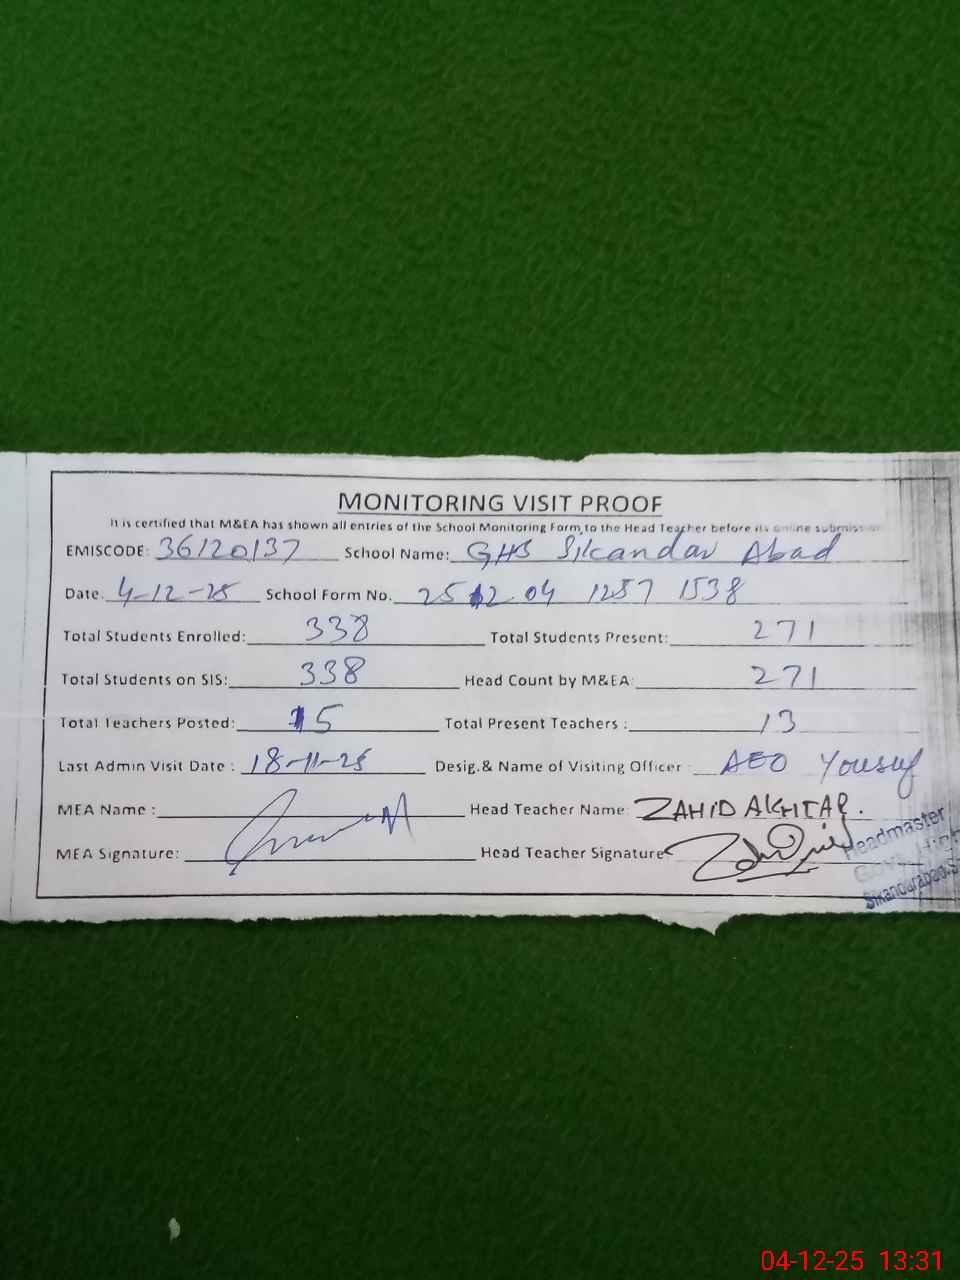 MONITORING VISIT PROOF
It is certified that M&EA has shown all entries of the School Monitoring Form, to the Head Teacher before its online submission
EMISCODE: 36120137 School Name: GHS Sikandar Abad
Date. 4-12-25 School Form No. 25 12 04 1257 1538
Total Students Enrolled: 338 Total Students Present: 271
Total Students on SIS: 338 Head Count by M&EA: 271
Total Teachers Posted: 15 Total Present Teachers : 13
Last Admin Visit Date : 18-11-25 Desig.& Name of Visiting Officer : AEO Yousuf
MEA Name : Head Teacher Name: ZAHID AKHTAR.
MEA Signature: Head Teacher Signature
Headmaster
Govt. High
Sikandarabad
04-12-25 13:31